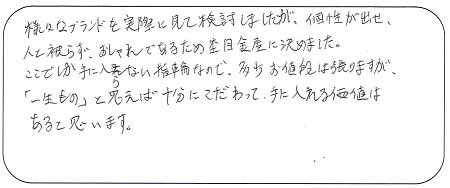 様々なブランドを実際に見て検討しましたが、個性が出せ、
人と被らず、おしゃれであるため杢目金屋に決めました。
ここでしか手に入らない指輪なので、多少お値段は張りますが、
「一生もの」と思えば十分にこだわって、手に入れる価値は
あると思います。